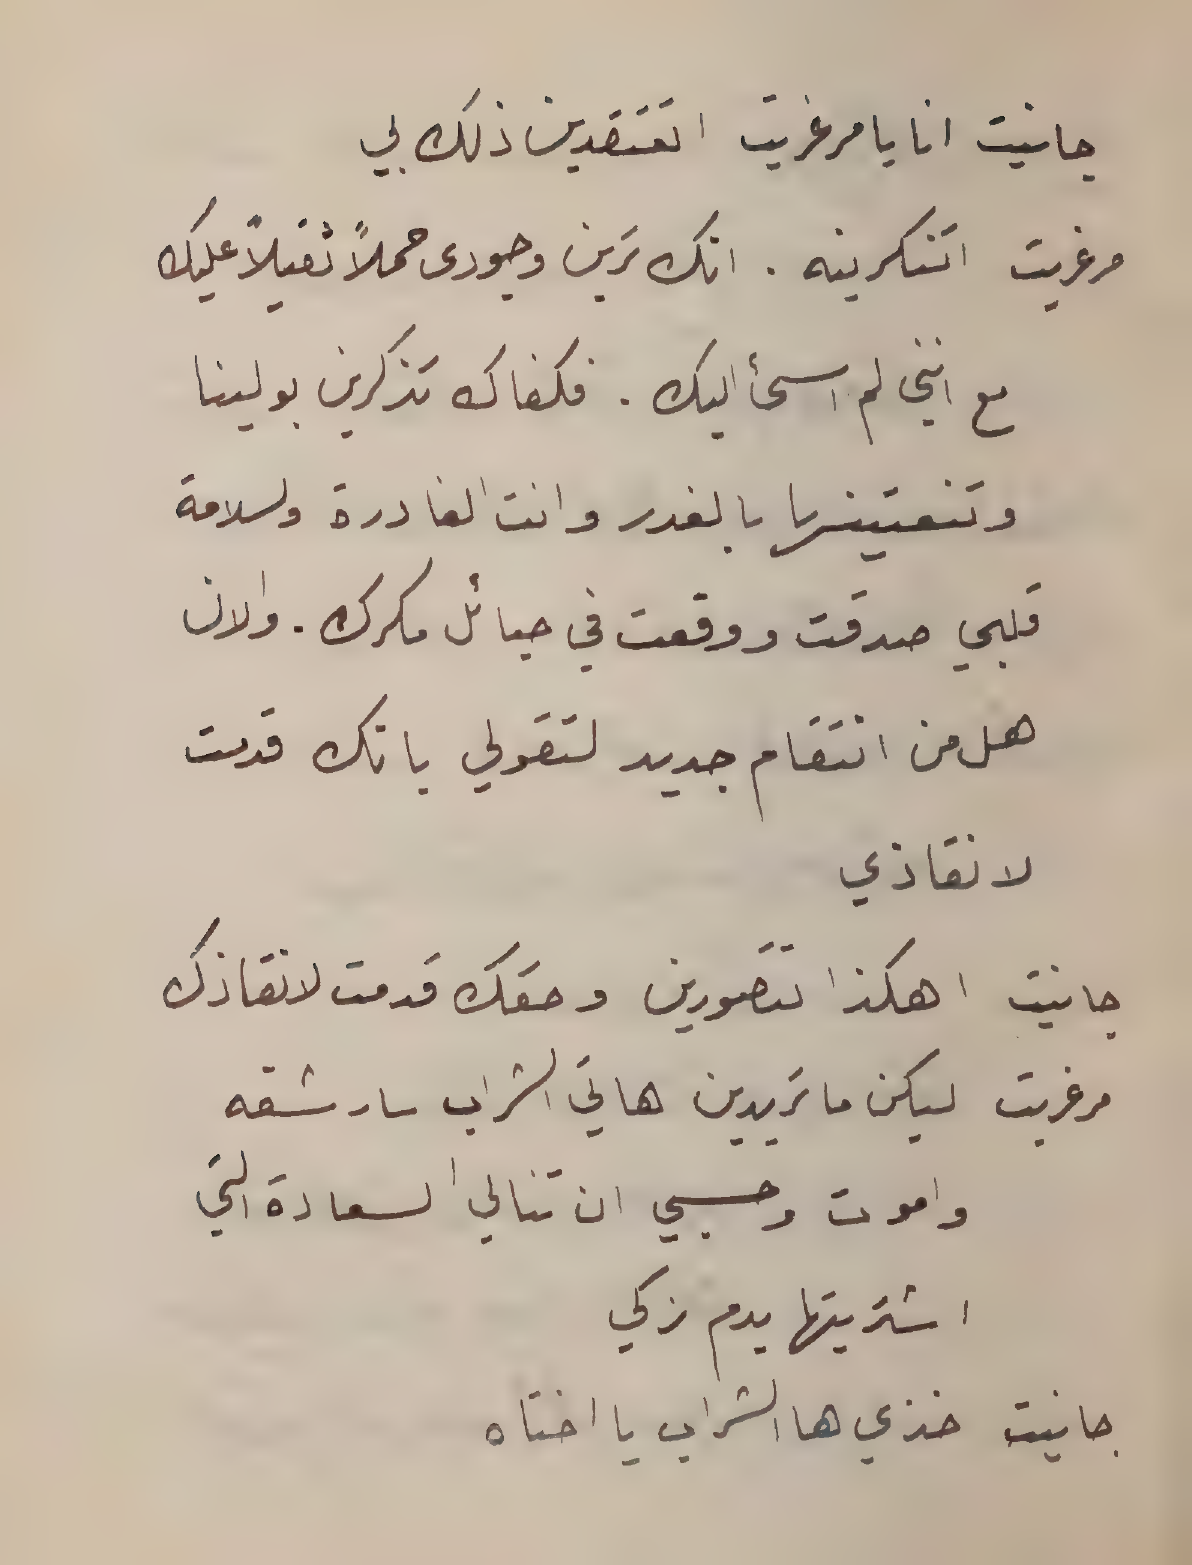 جانيت انا يا مرغريت اتعتقدين ذلك بي
مرغريت اتنكرينه . انك ترين وجودى حملاً ثقيلاً عليك
مع انني لم اسئ اليك . فكفاك تذكرين بولينا
وتنعتينها بالغدر وانت الغادرة ولسلامة
قلبي صدقت ووقعت في حبائل مكرك . والان
هل من انتقام جديد لتقولي بانك قدمت
لانقاذي
جانيت اهكذا تتصورين وحقك قدمت لانقاذك
مرغريت ليكن ما تريدين هاتي الشراب سارشقه
واموت وحسبي ان تنالي السعادة التي
اشتريتها بدم زكي
جانيت خذي ها الشراب يا اختاه